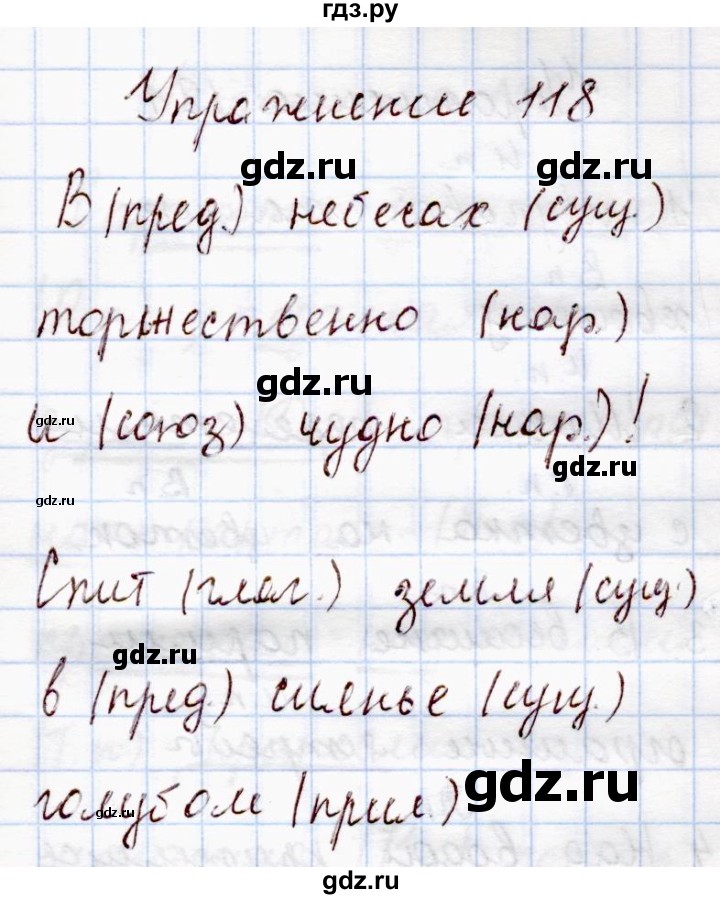 гдз.ру
Упражнение 118
gdz.ru
gdz.ru
В (пред.) небесах (сущ.)
торжественно (нар.)
gdz.ru
gdz.ru
и (союз) чудно (нар.)!
gdz.ru
gdz.ru
Спит (глаг.) земля (сущ.)
gdz.ru
в (пред.) сиянье (сущ.)
gdz.ru
gdz.ru
голубом (прил.)
gdz.ru